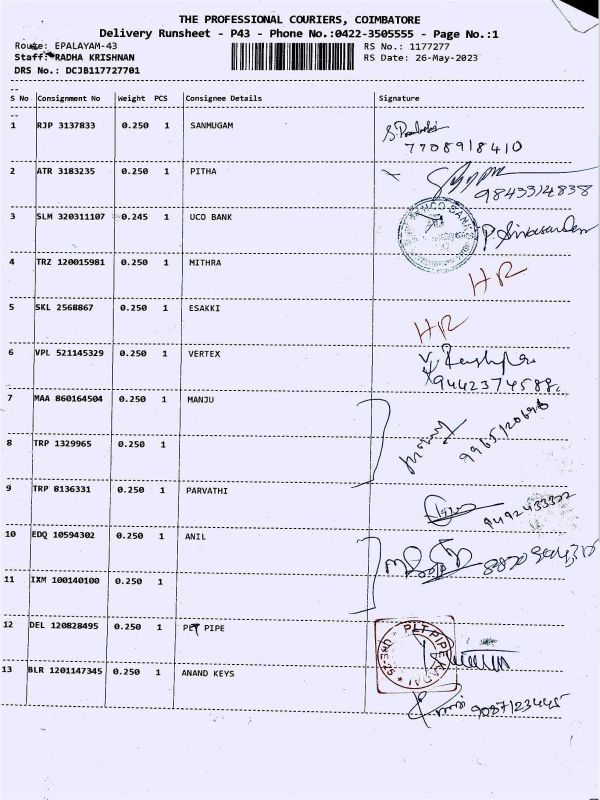 THE PROFESSIONAL COURIERS, COIMBATORE
Delivery Runsheet - P43 - Phone No.:0422-3505555 - Page No.:1
Route: EPALAYAM-43 RS No.: 1177277
Staff: RADHA KRISHNAN RS Date: 26-May-2023
DRS No.: DCJB117727701
S No Consignment No Weight PCS Consignee Details Signature
1 RJP 3137833 0.250 1 SANMUGAM
7708918410
2 ATR 3183235 0.250 1 PITHA
9843314838
3 SLM 320311107 0.245 1 UCO BANK UCO BANK
4 TRZ 120015981 0.250 1 MITHRA HR
5 SKL 2568867 0.250 1 ESAKKI HR
6 VPL 521145329 0.250 1 VERTEX
9442374588
7 MAA 860164504 0.250 1 MANJU
8 TRP 1329965 0.250 1
9 TRP 8136331 0.250 1 PARVATHI
10 EDQ 10594302 0.250 1 ANIL
11 IXM 100140100 0.250 1
12 DEL 120828495 0.250 1 PET PIPE
13 BLR 1201147345 0.250 1 ANAND KEYS
9087123445